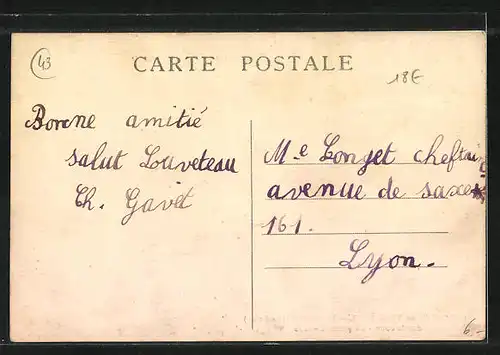 43
CARTE POSTALE
18E
Bonne amitié
salut Louveteau
Ch. Gavet
Me Longet cheftaine
avenue de saxe
161.
Lyon.
6-